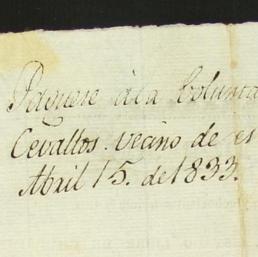 Páguese á la Volunta
Cevallos. vecino de es
Abril 15. de 1833.